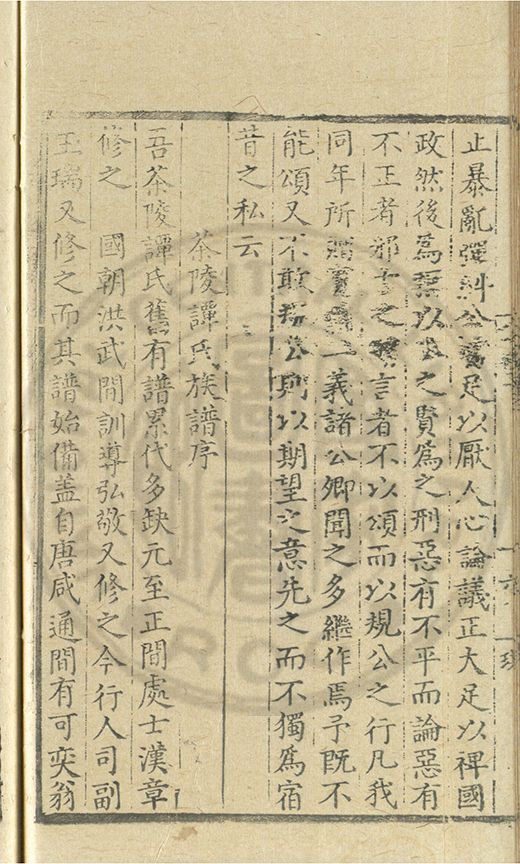 止暴亂彈糾公足以厭人心論議正大足以禆國
政然後為以之賢為之刑惡有不平而論惡有
不正者邪之言者不以頌而以規公之行凡我
同年所一義諸公卿聞之多繼作焉予既不
能頌又不敢公則以期望之意先之而不獨為宿
昔之私云
茶陵譚氏族譜序
吾茶陵譚氏舊有譜累代多缺元至正間處士漢章
修之　國朝洪武間訓導弘敬又修之今行人司副
玉瑞又修之而其譜始備盖自唐咸通間有可奕翁